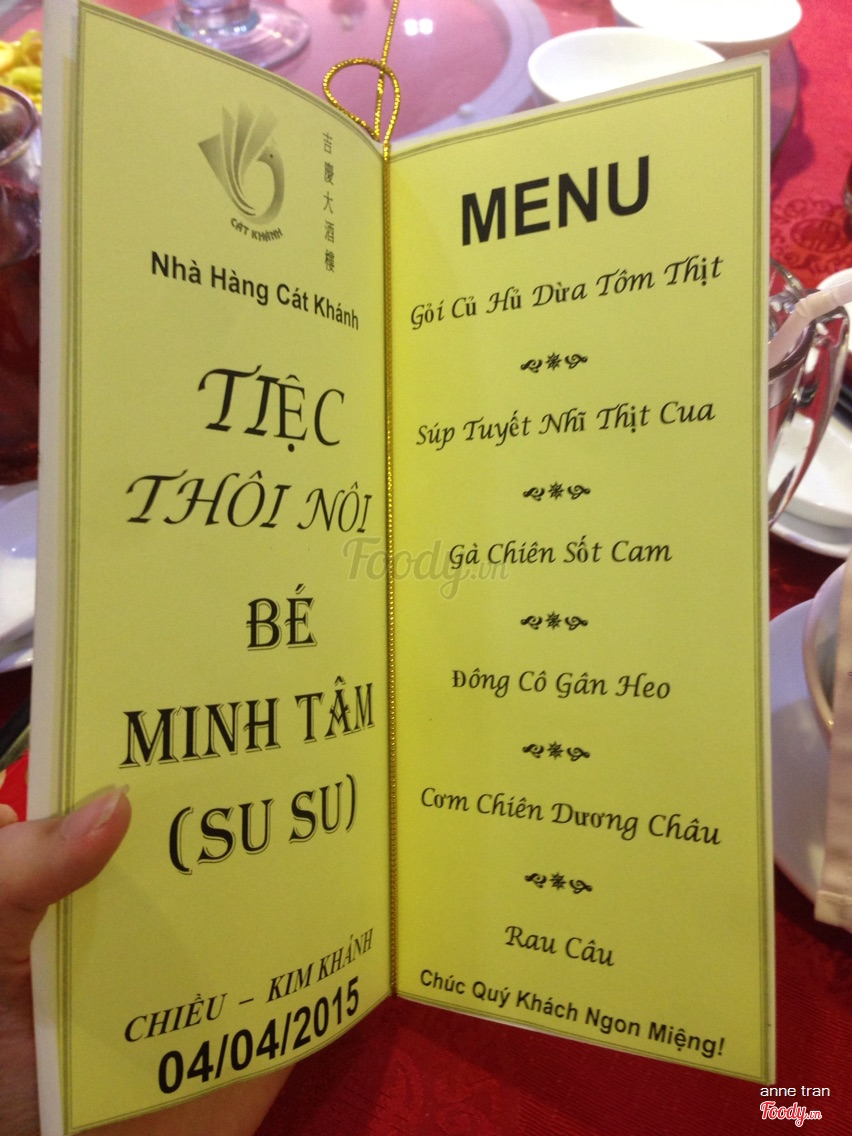 CÁT KHÁNH
吉慶大酒樓
Nhà Hàng Cát Khánh
TIỆC
THÔI NÔI
BÉ
MINH TÂM
(SU SU)
CHIỀU – KIM KHÁNH
04/04/2015
MENU
Gỏi Củ Hủ Dừa Tôm Thịt
Súp Tuyết Nhĩ Thịt Cua
Gà Chiên Sốt Cam
Đông Cô Gân Heo
Cơm Chiên Dương Châu
Rau Câu
Chúc Quý Khách Ngon Miệng!
Foody.vn
anne tran
Foody.vn